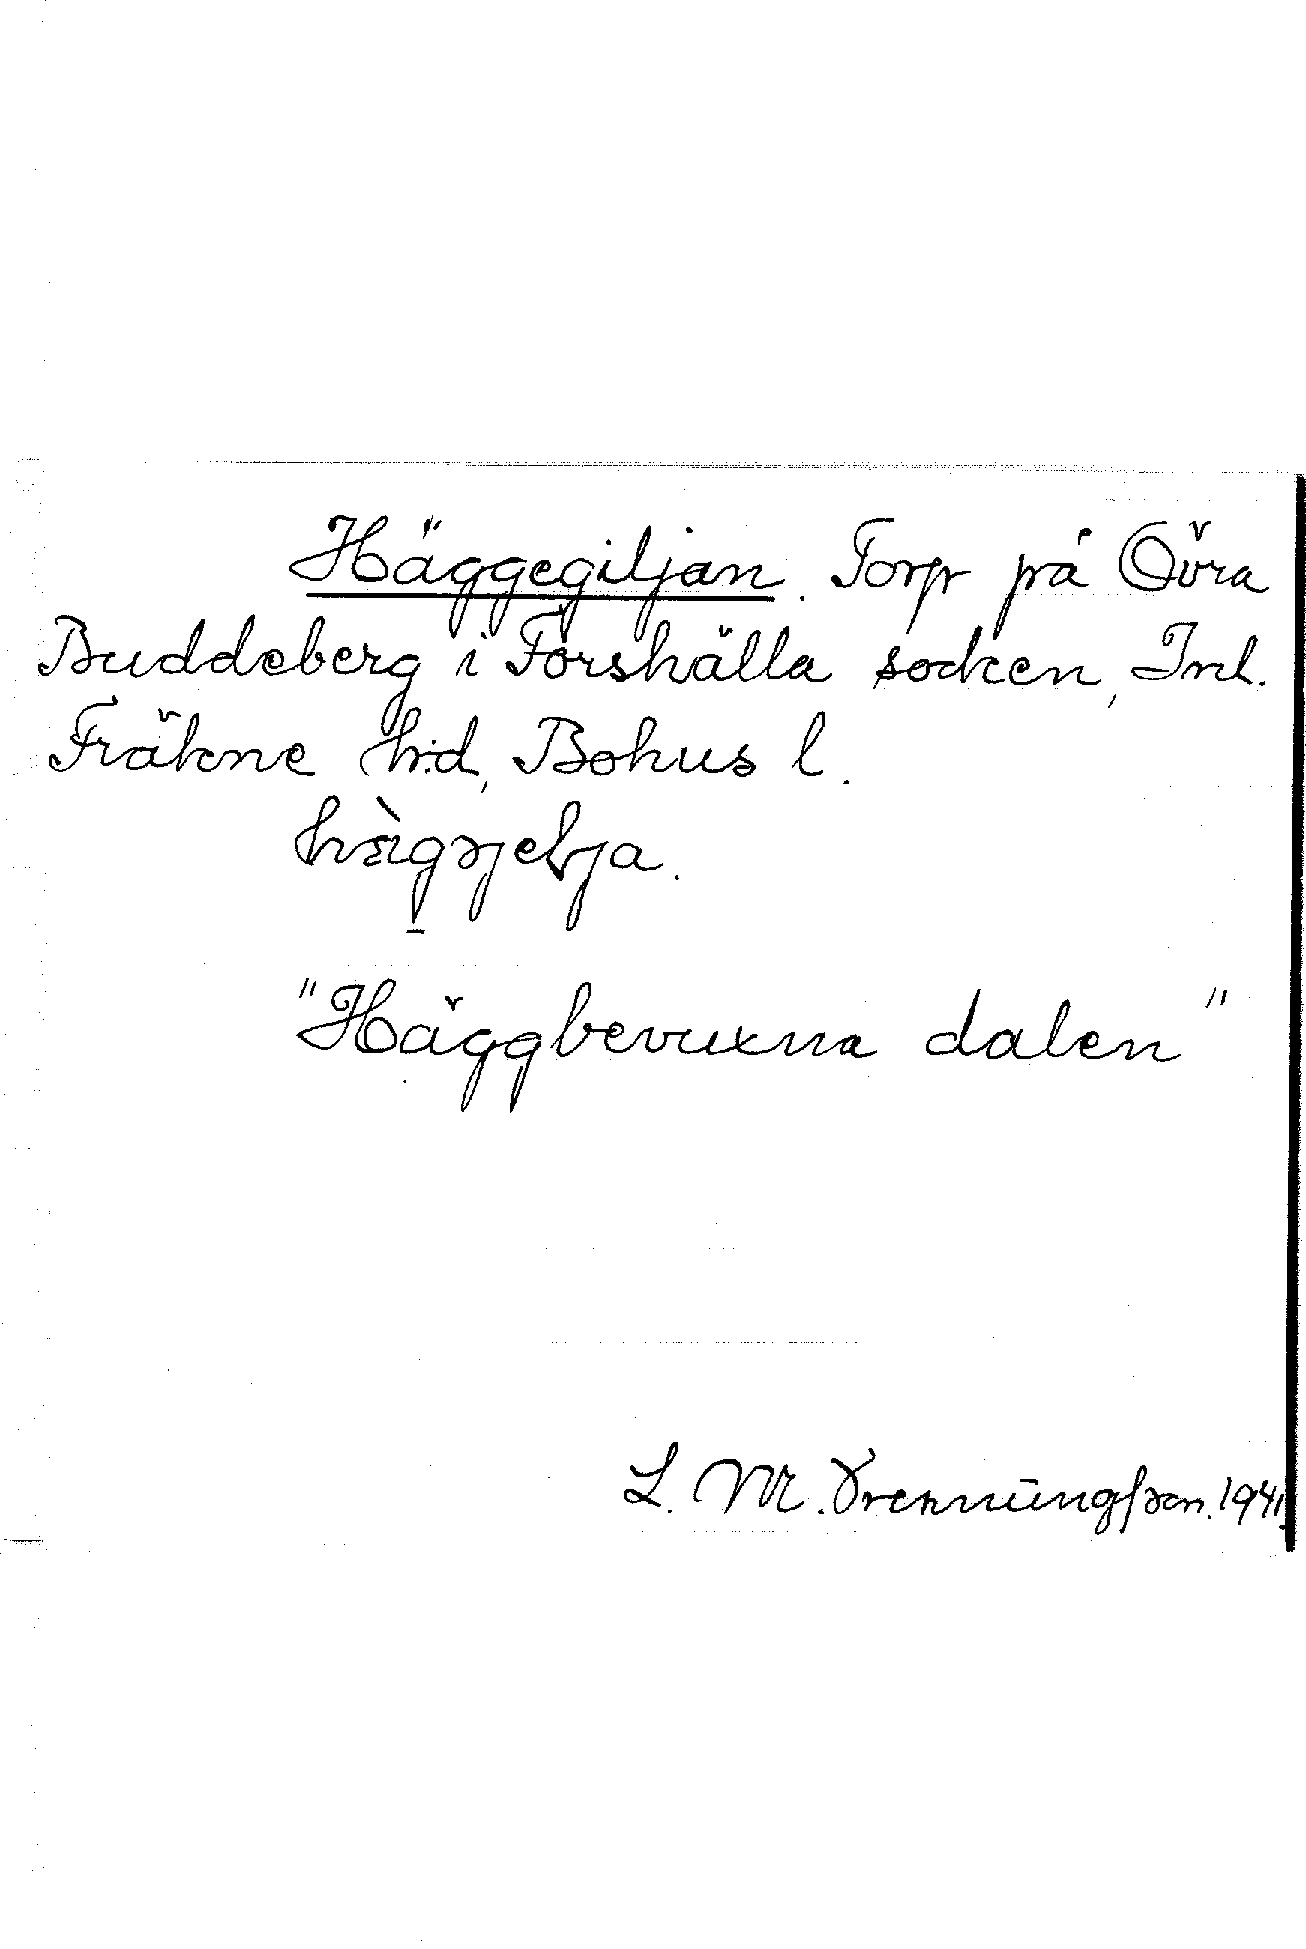 Häggegiljan. Torp på Övra
Buddeberg i Forshälla socken, Inl.
Fräkne h:d, Bohus l.
"Häggbevuxna dalen"
L. M. 1941.